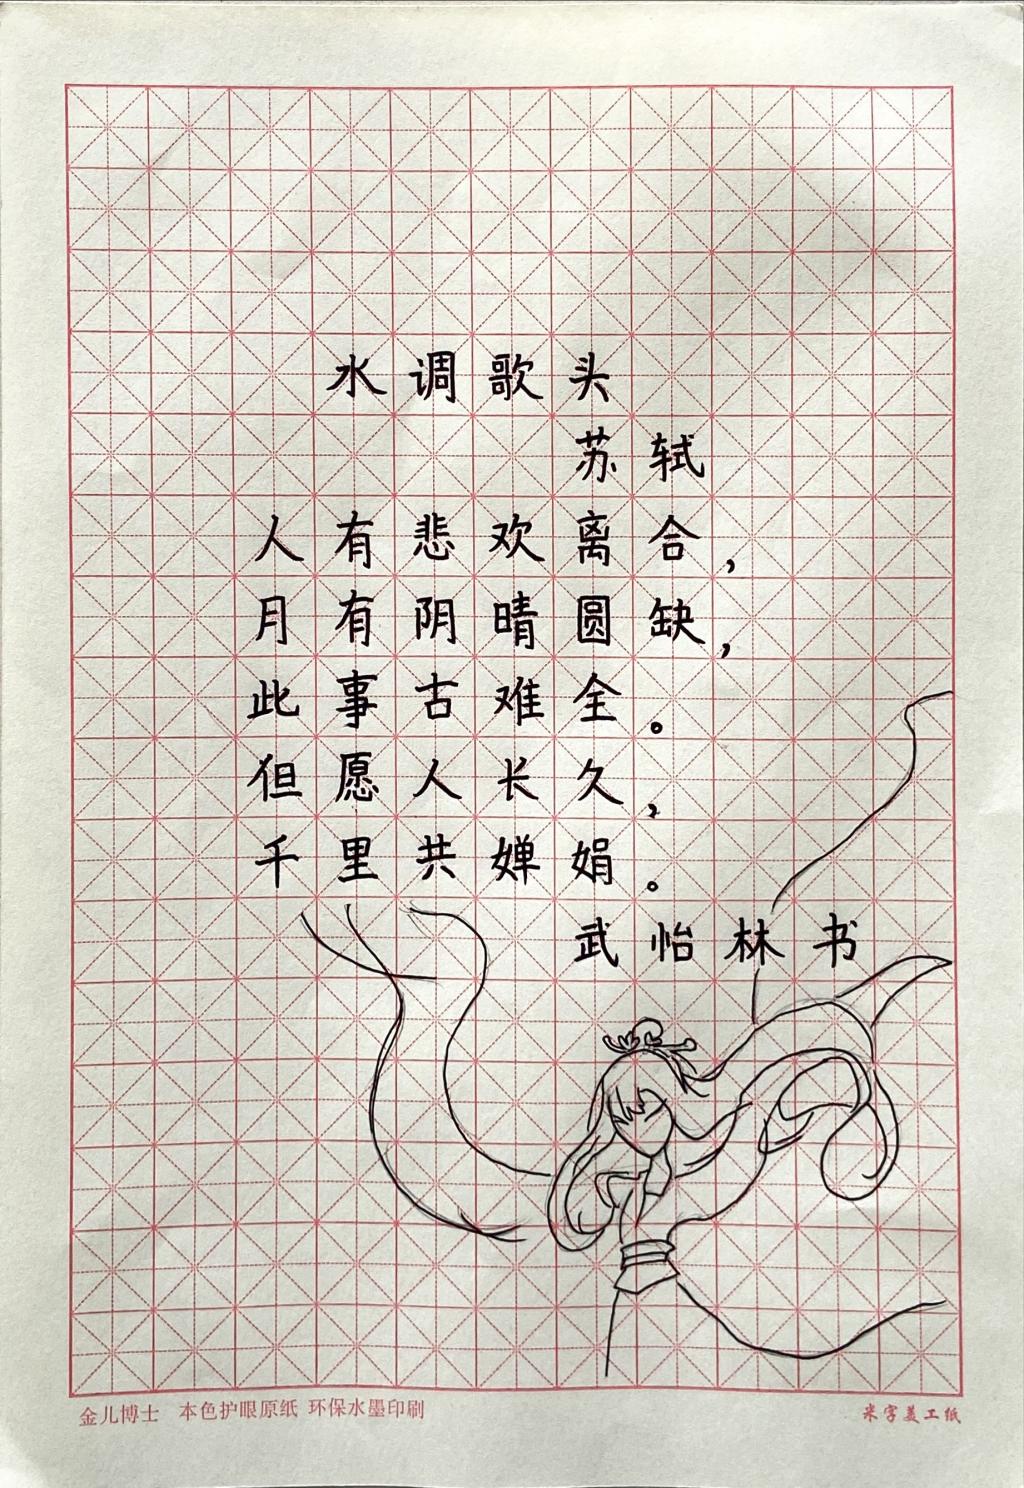 水调歌头
苏轼
人有悲欢离合，
月有阴晴圆缺，
此事古难全。
但愿人长久，
千里共婵娟。
武怡林书
金儿博士 本色护眼原纸 环保水墨印刷
米字美工纸